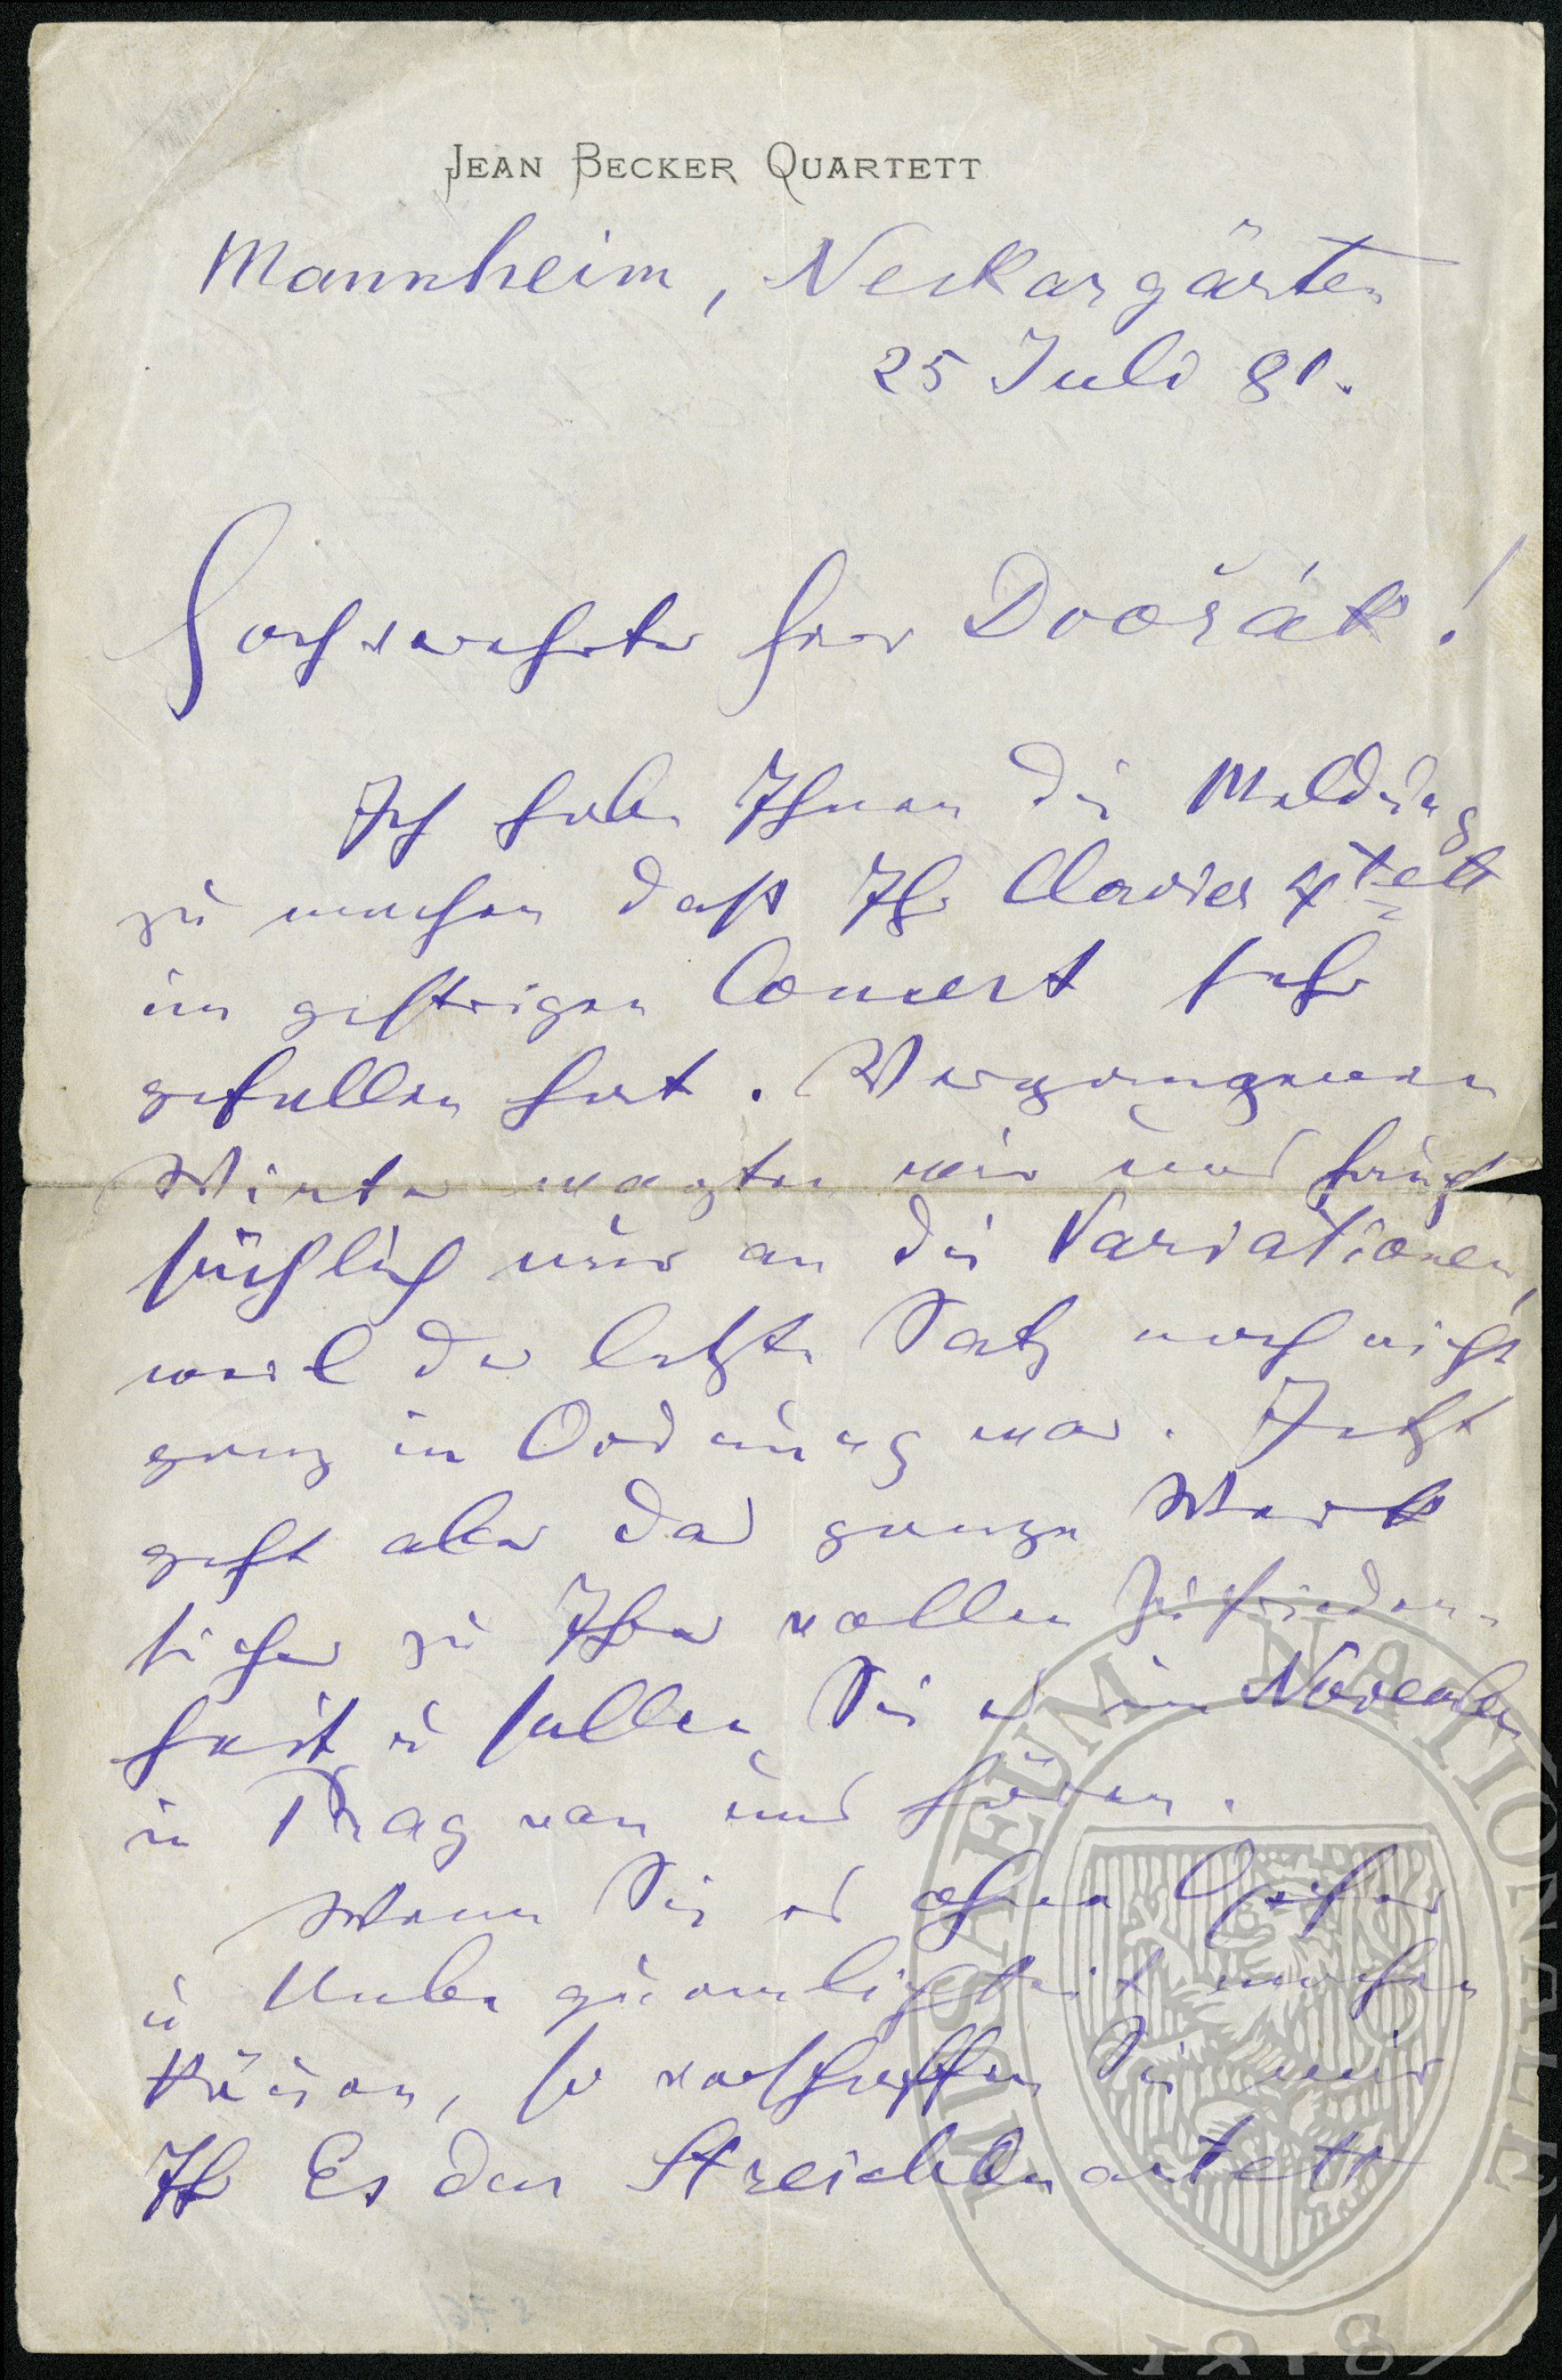 JEAN BECKER QUARTETT
Mannheim, Neckargärten
25 Juli 81.
Hochverehrter Herr Dvořák!
Ich habe Ihnen die Meldung
zu machen daß Ihr Clavier 4tett
im gestrigen Concert sehr
gefallen hat. Vergangenen
Winter wagten wir uns haupt
sächlich nur an die Variationen,
weil der letzte Satz noch nicht
ganz in Ordnung war. Jetzt
geht aber das ganze Werk
sicher zu Ihrer vollen Zufrieden-
heit u sollen Sie es im November
in Prag von uns hören.
Wenn Sie es ohne Opfer
u Unbequemlichkeit machen
können, so verschaffen Sie mir
Ihr Es dur Streichquartett
MUSAEUM NATIONALE
1818